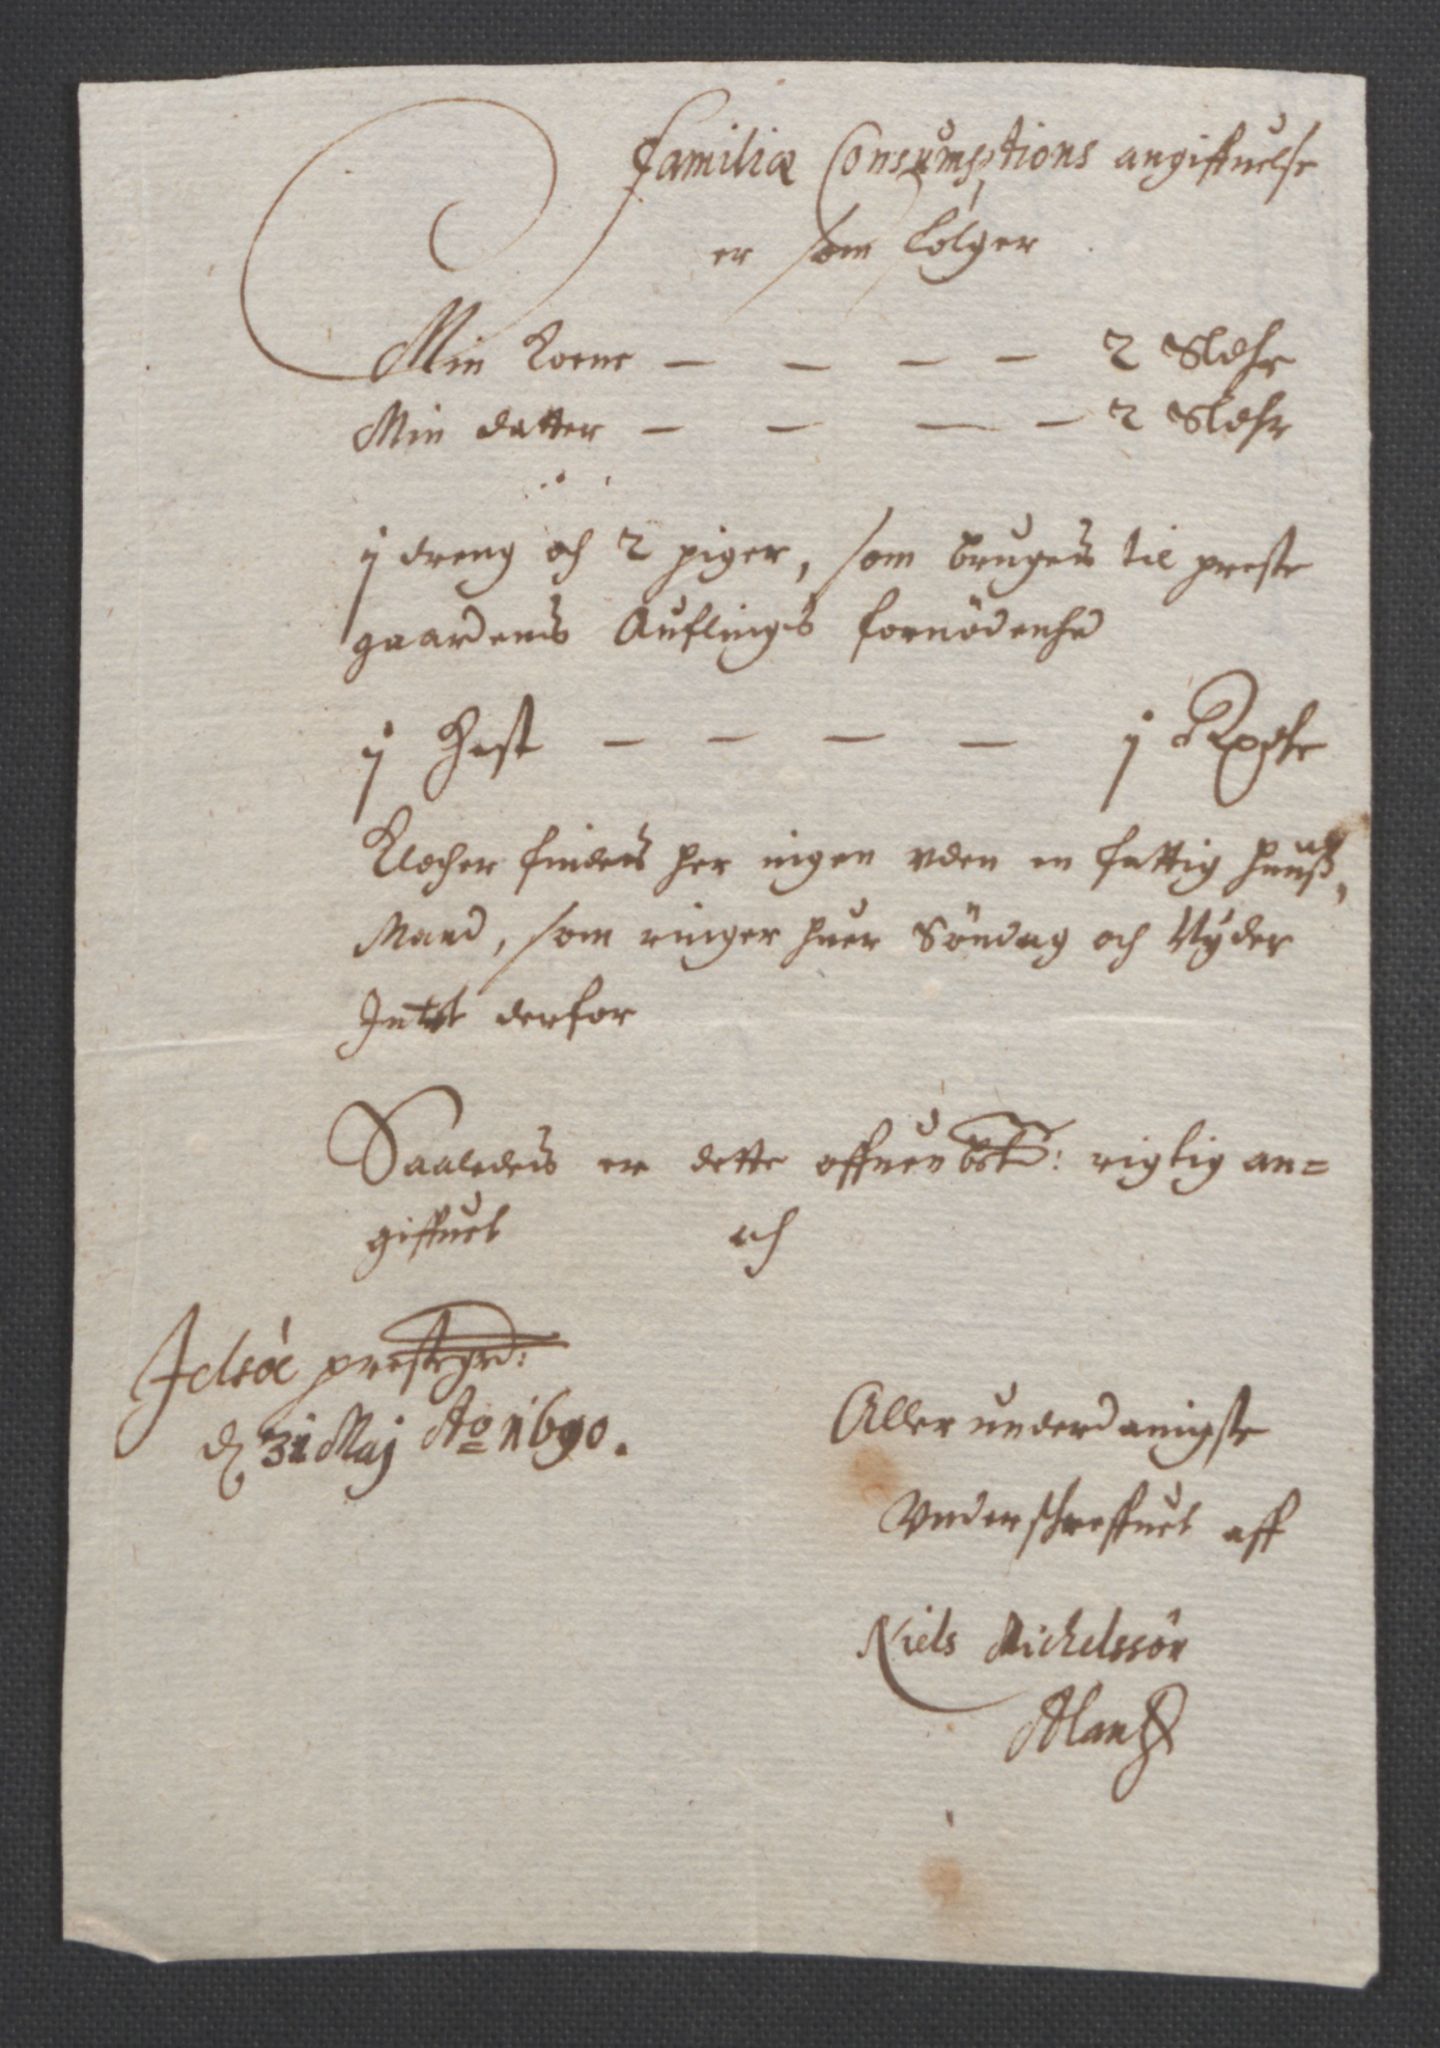 Familiæ Consumptions angiffuelse
er som følger
Min Kone — — — — 2 Sldhr
Min datter — — — — 2 Sldhr
j dreng och 2 piger, som brugis til preste
gaardens Auflings fornödenhd
j Hest — — — — j Rixdhr
Klocher findis her ingen vden en fattig huuß,
Mand, som ringer huer Söndag och Nyder
Intet derfor
Saaledis er dette offuenbete: rigtig an=
giffuet och
Jelsöe prestegrd:
d 31 Maj Ao 1690.
Aller underdanigste
Vnderschreffuet aff
Niels Michelssön